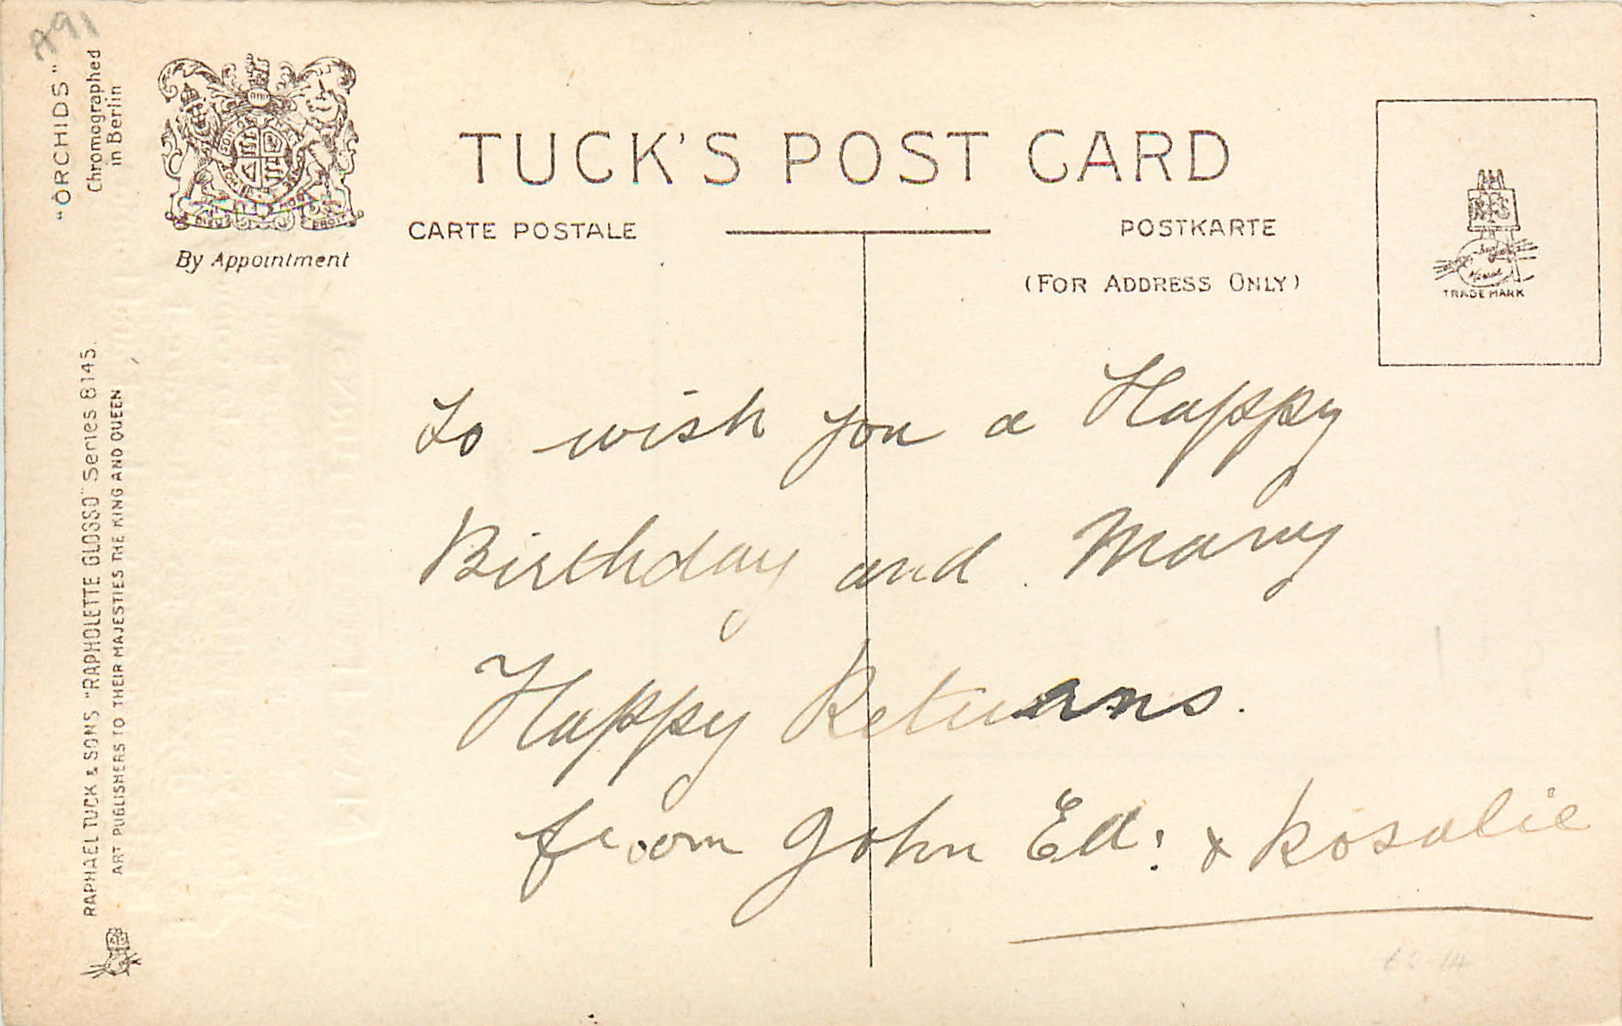 A91
"ORCHIDS"
Chromographed
in Berlin
By Appointment
TUCK'S POST CARD
CARTE POSTALE
POSTKARTE
(FOR ADDRESS ONLY)
R T S
TRADE MARK
RAPHAEL TUCK & SONS "RAPHOLETTE GLOSSO" Series 8145.
ART PUBLISHERS TO THEIR MAJESTIES THE KING AND QUEEN
To wish you a Happy
Birthday and Many
Happy Returns.
from John Ed: & Rosalie
62-14